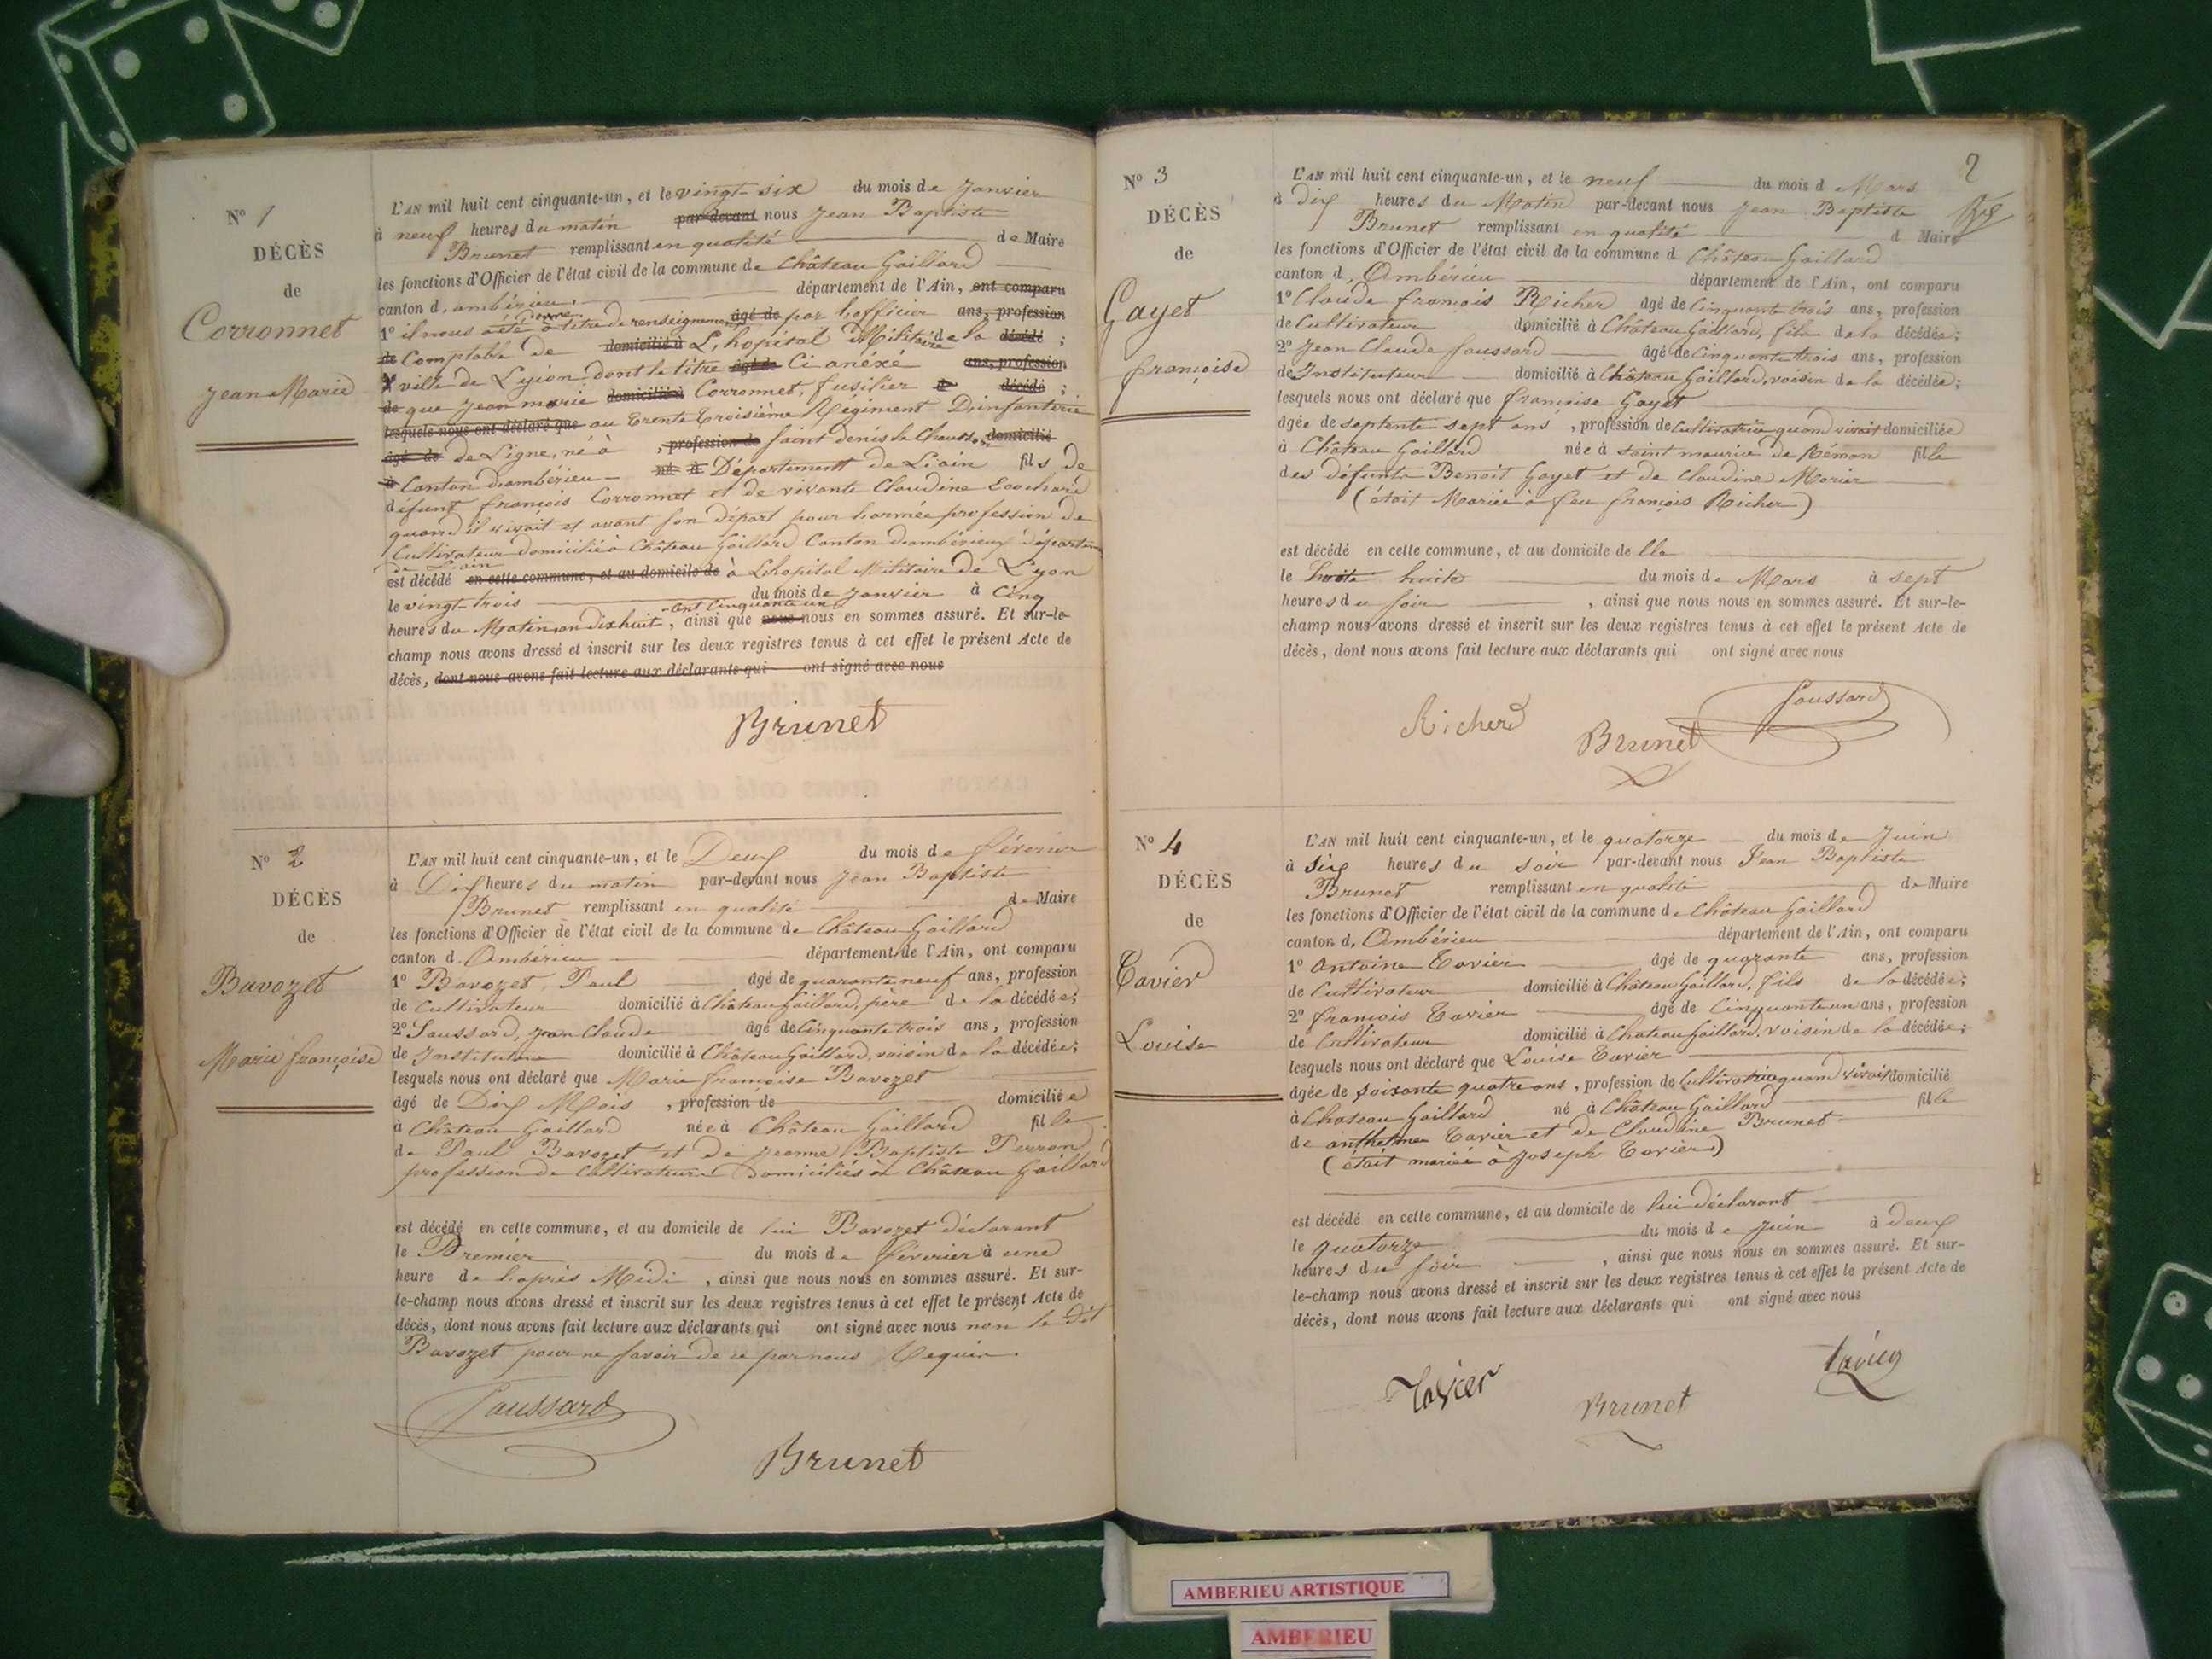 N° 1
DÉCÈS
de
Corronnet
Jean Marie
L'AN mil huit cent cinquante-un, et le vingt-six du mois de Janvier
à neuf heures du matin par-devant nous Jean Baptiste
Brunet remplissant en qualité de Maire
les fonctions d'Officier de l'état civil de la commune de Château Gaillard
canton d. ambérieu. département de l'Ain, ont comparu
1° il nous a été donné à titre de renseignement âgé de par l'officier ans, profession
de Comptable de domicilié à L'hopital Militaire de la décédé ;
ville de Lyion dont le titre âgé de Ci anéxé ans, profession
de que Jean marie domicilié à Corronnet, fusilier décédé ;
lesquels nous ont déclaré que au trente troisième Régiment D'infanterie
âgé de de Ligne, né à , profession de saint denis le Chausson domicilié
à Canton d'ambérieu né à Département de L'ain fils de
défunt françois Corronnet et de vivante Claudine Ecochard
quand il vivait et avant son départ pour l'armée profession de
Cultivateur domicilié à Château Gaillard Canton d'ambérieux départem
de L'ain
est décédé en cette commune, et au domicile de à L'hopital Militaire de Lyon
le vingt trois du mois de Janvier à Cinq
heures du Matin an dix huit cent cinquante un, ainsi que nous nous en sommes assuré. Et sur-le-
champ nous avons dressé et inscrit sur les deux registres tenus à cet effet le présent Acte de
décès, dont nous avons fait lecture aux déclarants qui ont signé avec nous
Brunet
N° 2
DÉCÈS
de
Bavozet
Marie françoise
L'AN mil huit cent cinquante-un, et le Deux du mois de féverier
à Dix heures du matin par-devant nous Jean Baptiste
Brunet remplissant en qualité de Maire
les fonctions d'Officier de l'état civil de la commune de Château Gaillard
canton d. Ambérieu département de l'Ain, ont comparu
1° Bavozet, Paul âgé de quarante neuf ans, profession
de Cultivateur domicilié à Château Gaillard, père de la décédée;
2° Saussard, Jean Claude âgé de Cinquante trois ans, profession
de Instituteur domicilié à Château Gaillard, voisin de la décédée;
lesquels nous ont déclaré que Marie françoise Bavozet
âgé de Dix Mois , profession de domiciliée
à Château Gaillard née à Château Gaillard fille
de Paul Bavozet et de Jeanne Baptiste Perron
profession de Cultivateurs Domiciliés à Château Gaillard
est décédé en cette commune, et au domicile de lui Bavozet déclarant
le Premier du mois de féverier à une
heure de l'après Midi , ainsi que nous nous en sommes assuré. Et sur-
le-champ nous avons dressé et inscrit sur les deux registres tenus à cet effet le présent Acte de
décès, dont nous avons fait lecture aux déclarants qui ont signé avec nous non le dit
Bavozet pour ne savoir de ce par nous Requis.
Saussard
Brunet
2
N° 3
DÉCÈS
de
Gayet
françoise
L'AN mil huit cent cinquante-un, et le neuf du mois d Mars
à dix heures du Matin par-devant nous Jean Baptiste
Brunet remplissant en qualité d Maire
les fonctions d'Officier de l'état civil de la commune d Château Gaillard
canton d. Ambérieu département de l'Ain, ont comparu
1° Claude françois Richer âgé de Cinquante trois ans, profession
de Cultivateur domicilié à Château Gaillard, fils de la décédée;
2° Jean Claude Saussard âgé de Cinquante trois ans, profession
de Instituteur domicilié à Château Gaillard, voisin de la décédée;
lesquels nous ont déclaré que françoise Gayet
âgée de septente sept ans , profession de Cultivatrice quand vivait domiciliée
à Château Gaillard née à saint maurice de Rémon fille
des défunts Benoit Gayet et de Claudine Morier
(était Mariée à feu françois Richer)
est décédé en cette commune, et au domicile de lle
le huite huite du mois de Mars à sept
heures du soir , ainsi que nous nous en sommes assuré. Et sur-le-
champ nous avons dressé et inscrit sur les deux registres tenus à cet effet le présent Acte de
décès, dont nous avons fait lecture aux déclarants qui ont signé avec nous
Richerd
Brunet
Saussard
N° 4
DÉCÈS
de
Tavier
Louise
L'AN mil huit cent cinquante-un, et le quatorze du mois de Juin
à Six heures du soir par-devant nous Jean Baptiste
Brunet remplissant en qualité de Maire
les fonctions d'Officier de l'état civil de la commune de Château Gaillard
canton d. Ambérieu département de l'Ain, ont comparu
1° Antoine Tavier âgé de quarante ans, profession
de Cultivateur domicilié à Château Gaillard, fils de la décédée;
2° françois Tavier âgé de Cinquante un ans, profession
de Cultivateur domicilié à Chateau Gaillard, voisin de la décédée;
lesquels nous ont déclaré que Louise Tavier
âgée de soixante quatre ans , profession de Cultivatrice quand vivait domicilié
à Chateau Gaillard né à Château Gaillard fille
de anthelme Tavier et de Claudine Brunet
(était mariée à Joseph Tavier)
est décédé en cette commune, et au domicile de lui déclarant
le quatorze du mois de Juin à deux
heures du soir , ainsi que nous nous en sommes assuré. Et sur-
le-champ nous avons dressé et inscrit sur les deux registres tenus à cet effet le présent Acte de
décès, dont nous avons fait lecture aux déclarants qui ont signé avec nous
Tavier
Brunet
tavier
AMBERIEU ARTISTIQUE
AMBERIEU